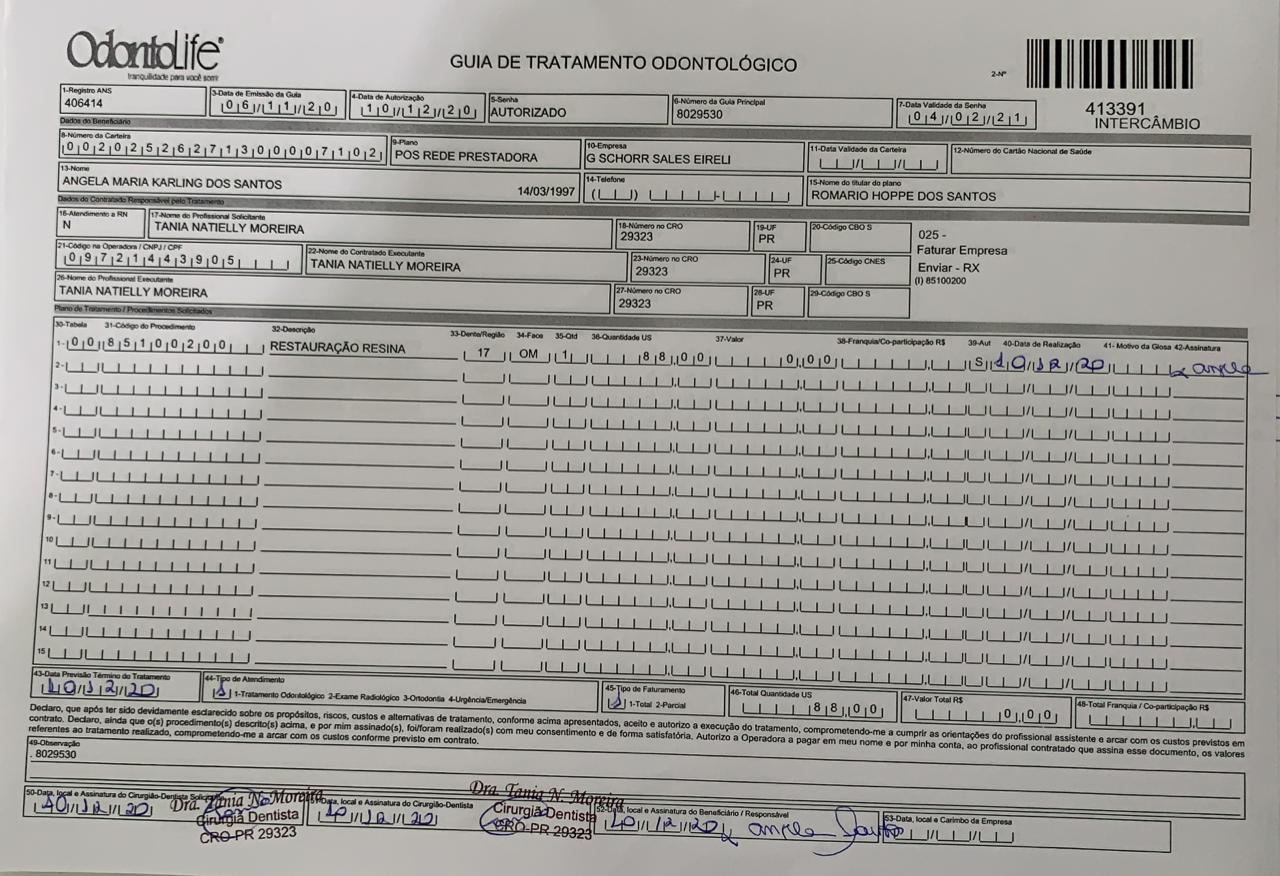 OdontoLife®
tranquilidade para você sorrir
GUIA DE TRATAMENTO ODONTOLÓGICO
2-Nº
413391
INTERCÂMBIO
1-Registro ANS
406414
3-Data de Emissão da Guia
06/11/20
4-Data de Autorização
10/12/20
5-Senha
AUTORIZADO
6-Número da Guia Principal
8029530
7-Data Validade da Senha
04/02/21
Dados do Beneficiário
8-Número da Carteira
00202526271300007102
9-Plano
POS REDE PRESTADORA
10-Empresa
G SCHORR SALES EIRELI
11-Data Validade da Carteira
12-Número do Cartão Nacional de Saúde
13-Nome
ANGELA MARIA KARLING DOS SANTOS 14/03/1997
14-Telefone
15-Nome do titular do plano
ROMARIO HOPPE DOS SANTOS
Dados do Contratado Responsável pelo Tratamento
16-Atendimento a RN
N
17-Nome do Profissional Solicitante
TANIA NATIELLY MOREIRA
18-Número no CRO
29323
19-UF
PR
20-Código CBO S
025 -
Faturar Empresa
Enviar - RX
(I) 85100200
21-Código na Operadora / CNPJ / CPF
09721443905
22-Nome do Contratado Executante
TANIA NATIELLY MOREIRA
23-Número no CRO
29323
24-UF
PR
25-Código CNES
26-Nome do Profissional Executante
TANIA NATIELLY MOREIRA
27-Número no CRO
29323
28-UF
PR
29-Código CBO S
Plano de Tratamento / Procedimentos Solicitados
30-Tabela 31-Código do Procedimento 32-Descrição 33-Dente/Região 34-Face 35-Qtd 36-Quantidade US 37-Valor 38-Franquia/Co-participação R$ 39-Aut 40-Data de Realização 41- Motivo da Glosa 42-Assinatura
1- 00 85100200 RESTAURAÇÃO RESINA 17 OM 1 88,00 0,00 S 10/12/20 x angela
2-
3-
4-
5-
6-
7-
8-
9-
10
11
12
13
14
15
43-Data Previsão Término do Tratamento
10/12/20
44-Tipo de Atendimento
1 1-Tratamento Odontológico 2-Exame Radiológico 3-Ortodontia 4-Urgência/Emergência
45-Tipo de Faturamento
1 1-Total 2-Parcial
46-Total Quantidade US
88,00
47-Valor Total R$
0,00
48-Total Franquia / Co-participação R$
Declaro, que após ter sido devidamente esclarecido sobre os propósitos, riscos, custos e alternativas de tratamento, conforme acima apresentados, aceito e autorizo a execução do tratamento, comprometendo-me a cumprir as orientações do profissional assistente e arcar com os custos previstos em
contrato. Declaro, ainda que o(s) procedimento(s) descrito(s) acima, e por mim assinado(s), foi/foram realizado(s) com meu consentimento e de forma satisfatória. Autorizo a Operadora a pagar em meu nome e por minha conta, ao profissional contratado que assina esse documento, os valores
referentes ao tratamento realizado, comprometendo-me a arcar com os custos conforme previsto em contrato.
49-Observação
. 8029530
50-Data, local e Assinatura do Cirurgião-Dentista Solicitante
10/12/20
Dra. Tania N. Moreira
Cirurgiã Dentista
CRO-PR 29323
Data, local e Assinatura do Cirurgião-Dentista
10/12/20
Dra. Tania N. Moreira
Cirurgiã Dentista
CRO-PR 29323
52-Data, local e Assinatura do Beneficiário / Responsável
10/12/20 x angela Santos
53-Data, local e Carimbo da Empresa